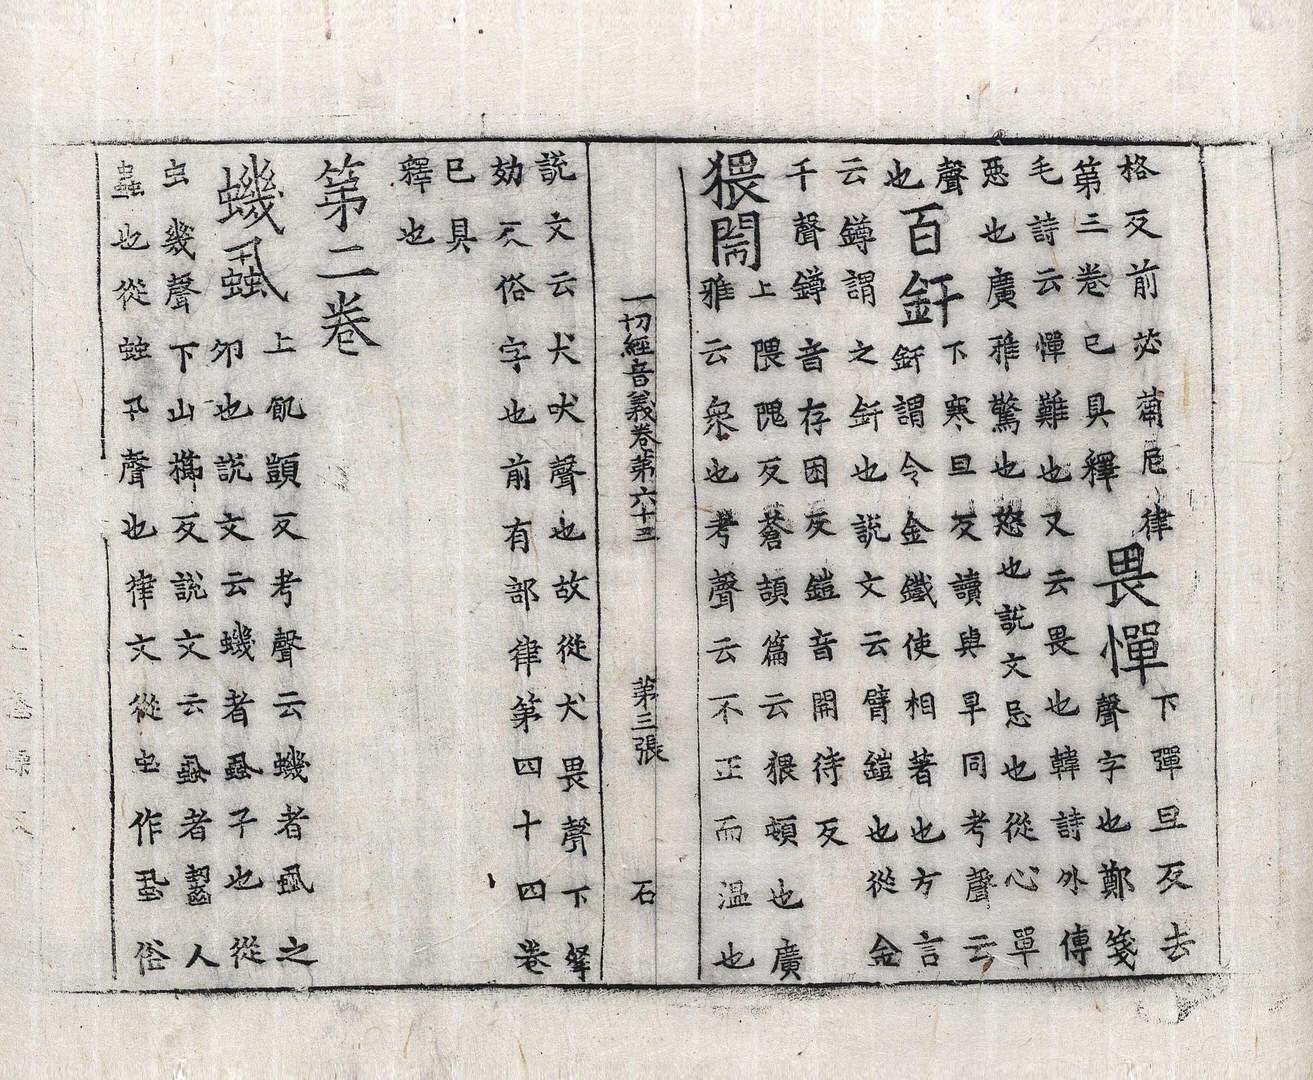 格反前苾蒭尼律
第三卷已具釋
畏憚
下彈旦反去
聲字也鄭箋
毛詩云憚難也又云畏也韓詩外傳
惡也廣雅驚也怒也說文忌也從心單
聲
也
百釬
下寒旦反讀與早同考聲云
釬謂令金鐵使相著也方言
云鐏謂之釬也說文云臂鎧也從金
干聲鐏音存困反鎧音開待反
猥閙
上隈隗反蒼頡篇云猥頓也廣
雅云衆也考聲云不正而溫也
說文云犬吠聲也故從犬畏聲下拏
効反俗字也前有部律第四十四卷
已具
釋也
一切經音義卷第六十三 第三張 石
第二卷
蟣蝨
上飢顗反考聲云蟣者蝨之
夘也說文云蟣者蝨子也從
虫幾聲下山擳反說文云蝨者齧人
蟲也從䖵卂聲也律文從虫作虱俗